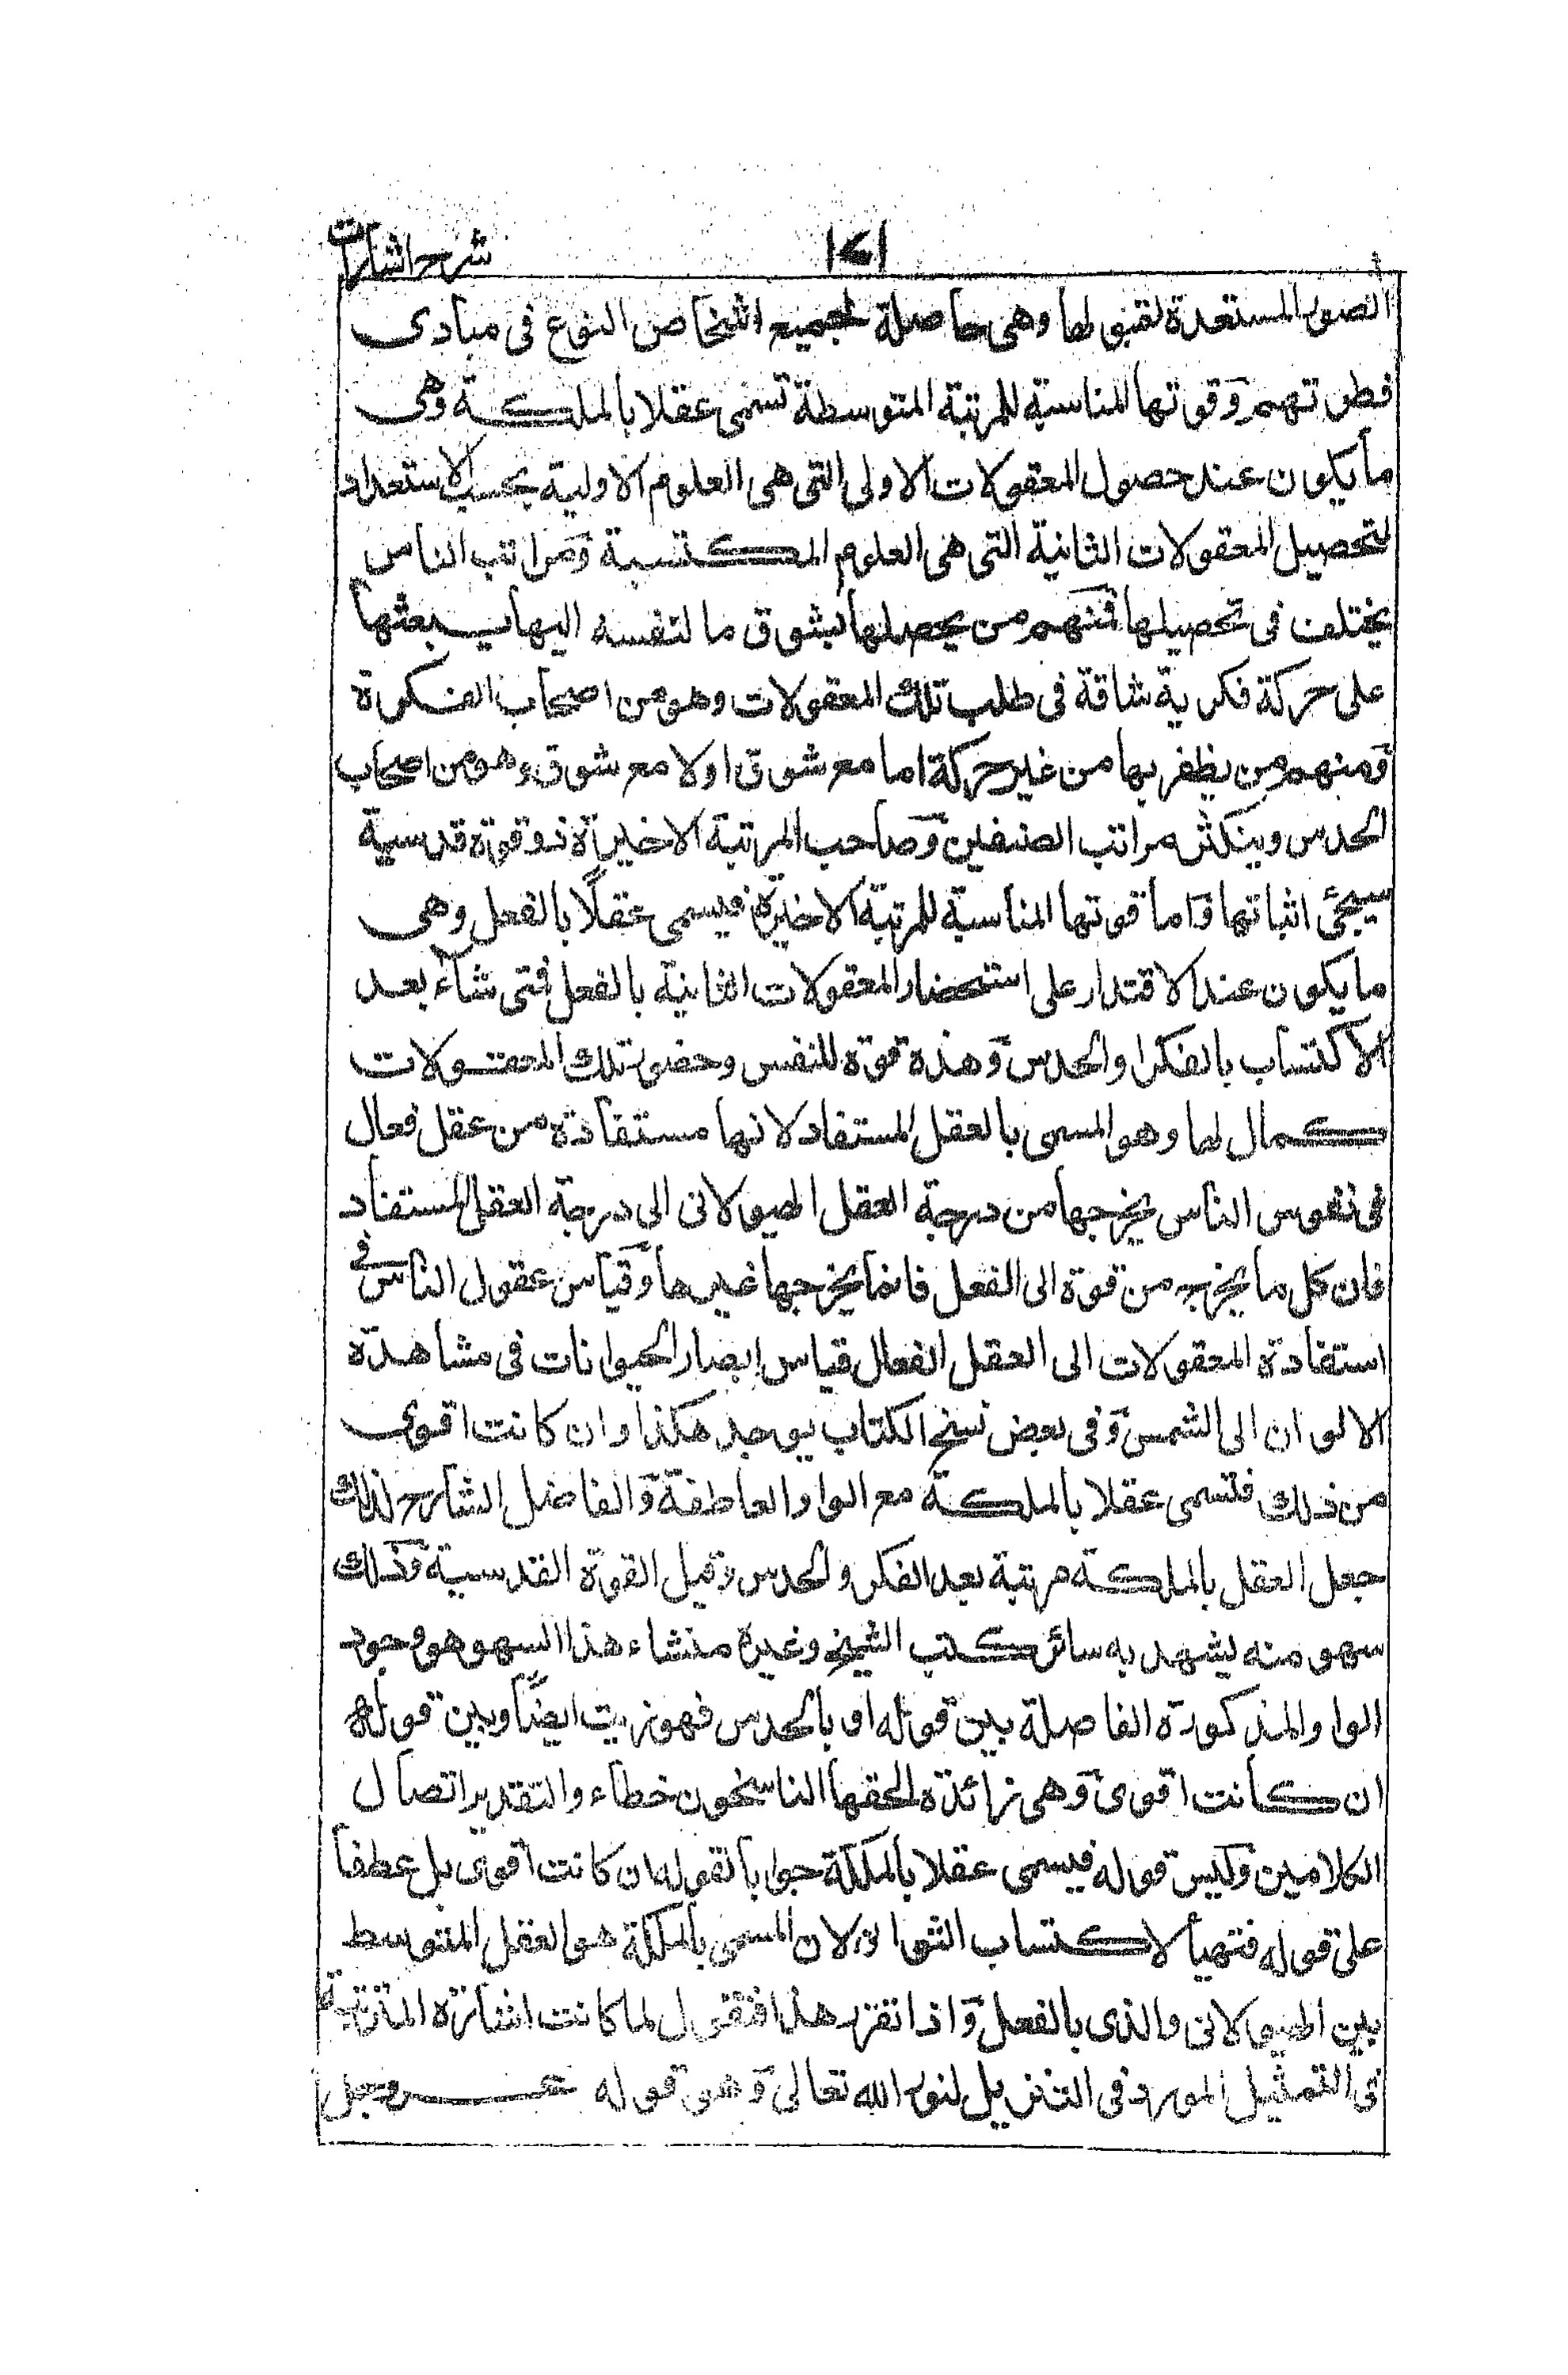 شرح اشارات
١٢١
الصور المستعدة لقبولها وهى حاصلة لجميع اشخاص النوع فى مبادى
فطرتهم وقوتها المناسبة للمرتبة المتوسطة تسمى عقلا بالملكة وهى
ما يكون عند حصول المعقولات الاولى التى هى العلوم الاولية بحسب الاستعداد
لتحصيل المعقولات الثانية التى هى العلوم المكتسبة ومراتب الناس
يختلف فى تحصيلها فمنهم من يحصلها بشوق ما لنفسه اليها يبعثها
على حركة فكرية شاقة فى طلب تلك المعقولات وهو من اصحاب الفكرة
ومنهم من يظفر بها من غير حركة اما مع شوق اولا مع شوق وهو من اصحاب
الحدس ويتكثر مراتب الصنفين وصاحب المرتبة الاخيرة ذو قوة قدسية
سيجئ اثباتها واما قوتها المناسبة للمرتبة الاخيرة فيسمى عقلًا بالفعل وهى
ما يكون عند الاقتدار على استحضار المعقولات الثانية بالفعل فمتى شاء بعد
الاكتساب بالفكر او الحدس وهذه قوة للنفس وحضور تلك المعقولات
كمال لها وهو المسمى بالعقل المستفاد لانها مستفادة من عقل فعال
فى نفوس الناس يخرجها من درجة العقل الهيولانى الى درجة العقل المستفاد
فان كل ما يخرج من قوة الى الفعل فانما يخرجها غيرها وقياس عقول الناس فى
استفادة المعقولات الى العقل الفعال قياس ابصار الحيوانات فى مشاهدة
الالوان الى الشمس وفى بعض نسخ الكتاب يوجد هكذا وان كانت اقوى
من ذلك فتسمى عقلا بالملكة مع الواو العاطفة والفاضل الشارح لذلك
جعل العقل بالملكة مرتبة بعد الفكر والحدس وقبل القوة القدسية وذلك
سهو منه يشهد به سائر كتب الشيخ وغيره منشاء هذا السهو هو وجود
الواو المذكورة الفاصلة بين قوله او بالحدس فهو زيت ايضًا وبين قوله
ان كانت اقوى وهى زائدة الحقها الناسخون خطاء والتقدير اتصال
الكلامين وليس قوله فيسمى عقلا بالملكة جوابا لقوله ان كانت اقوى بل عطفا
على قوله فتهيأ لاكتساب الثوانى لان المسمى بالملكة هو العقل المتوسط
بين الهيولانى والذى بالفعل واذا تقرر هذا فنقول لما كانت اشارته المترتبة
فى التمثيل المورد فى التنزيل لنور الله تعالى وهو قوله عزوجل